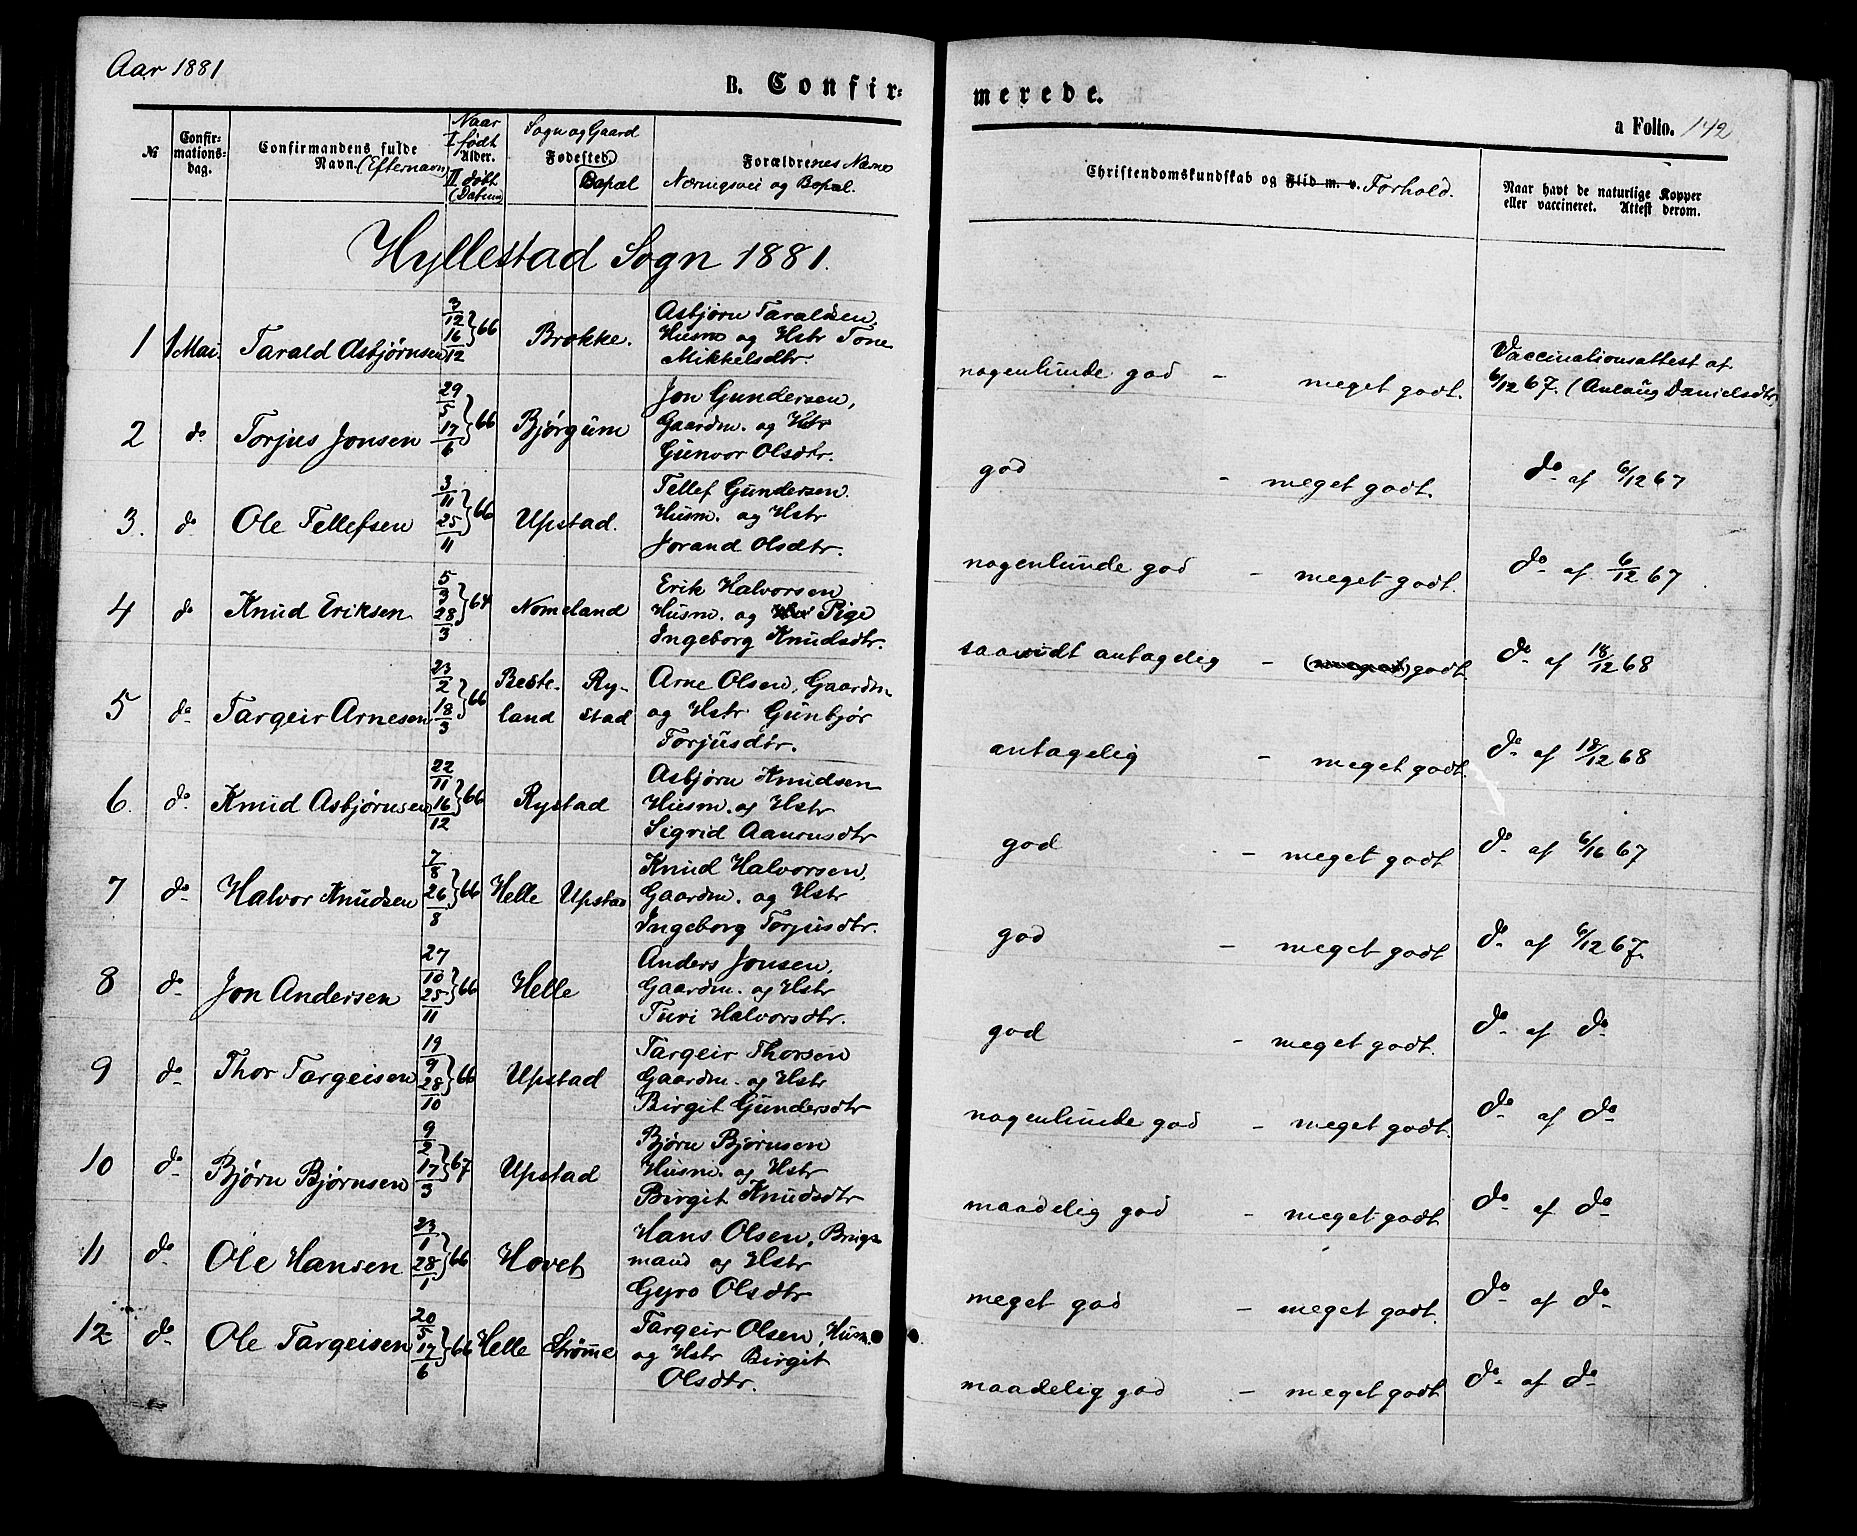 Aar 1881
B. Confir-
merede.
a Folio. 142
№
Confir-
mations-
dag.
Confirmandens fulde
Navn. (Efternavn)
Naar
I født
Alder.
II døbt
(Datum)
Sogn og Gaard
Fødested.
Bopæl
Forældrenes Navne
Næringsvei og Bopæl.
Christendomskundskab og Flid m. v. Forhold.
Naar havt de naturlige Kopper
eller vaccineret. Attest derom.
Hyllestad Sogn 1881.
1 1 Mai Tarald Asbjørnsen 3/12 16/12 }66 Brokke. Asbjørn Taraldsen,
Husm og Hstr Tone
Mikkelsdtr.
nogenlunde god - meget godt. Vaccinationsattest af
6/12 67. (Anlaug Danielsdtr)
2 do Torjus Jonsen 29/5 17/6 }66 Bjørgum Jon Gundersen,
Gaardm. og Hstr
Gunvor Olsdtr.
god - meget godt. do af 6/12 67
3. do Ole Tellefsen 3/11 25/11 }66 Upstad. Tellef Gundersen.
Husm. og Hstr
Jorand Olsdtr.
nogenlunde god - meget godt. do af 6/12 67
4 do Knud Eriksen 5/3 28/3 }64 Nomeland Erik Halvorsen
Husm. og Pige
Ingeborg Knudsdtr.
saavidt antagelig - (meget) godt. do af 18/12 68
5 do Targeir Arnesen 23/2 18/3 }66 Beste- Ry- Arne Olsen, Gaardm
land stad og Hstr Gunbjør
Torjusdtr.
antagelig - meget godt. do af 18/12 68
6. do Knud Asbjørnsen 22/11 16/12 }66 Rystad Asbjørn Knudsen
Husm. og Hstr
Sigrid Aanonsdtr
god - meget godt do af 6/16 67
7 do Halvor Knudsen 7/8 26/8 }66 Helle Upstad Knud Halvorsen,
Gaardm. og Hstr
Ingeborg Torjusdtr.
god - meget godt do af 6/12 67.
8 do Jon Andersen 27/10 25/11 }66 Helle Anders Jonsen,
Gaardm. og Hstr
Turi Halvorsdtr.
god - meget godt. do af do
9 do Thor Targeisen 19/9 28/10 }66 Upstad Targeir Thorsen
Gaardm. og Hstr
Birgit Gundersdtr
nogenlunde god - meget godt. do af do
10 do Bjørn Bjørnsen 9/2 17/3 }67 Upstad Bjørn Bjørnsen
Husm. og Hstr
Birgit Knudsdtr
maadelig god - meget godt do af do
11 do Ole Hansen 23/1 28/1 }66 Hovet Hans Olsen, Brugs
mand og Hstr
Gyro Olsdtr
meget god - meget godt. do af do
12 do Ole Targeisen 20/5 17/6 }66 Helle Strømme Targeir Olsen, Husm.
og Hstr Birgit
Olsdtr.
maadelig god - meget godt do af do